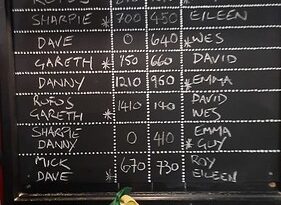 SHARPIE * 700 450 EILEEN
DAVE 0 640 * WES
GARETH * 750 660 DAVID
DANNY 1210 950 * EMMA
RUFUS 1410 140 DAVID
GARETH * WES
SHARPIE 0 410 EMMA
DANNY * GUY
MICK 670 730 ROY
DAVE * EILEEN